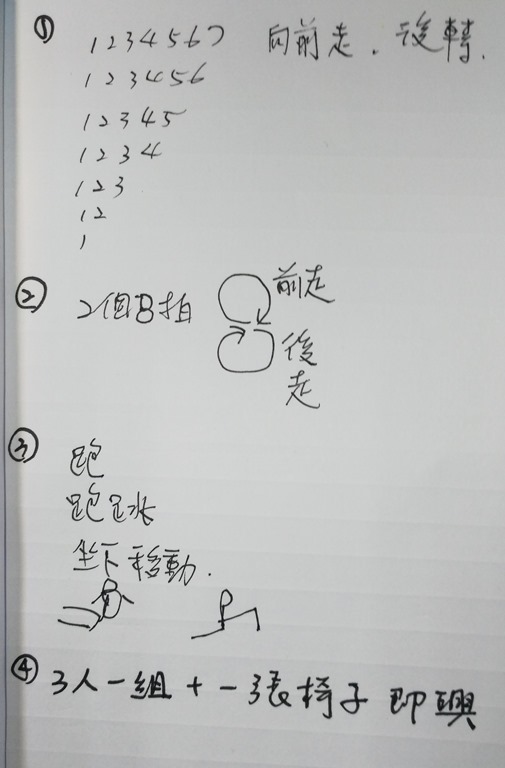 ① 1234567 向前走．後轉．
123456
12345
1234
123
12
1
② 2個8拍 前走
後走
③ 跑
跑跳
坐下移動．
④ 3人一組+一張椅子 即興